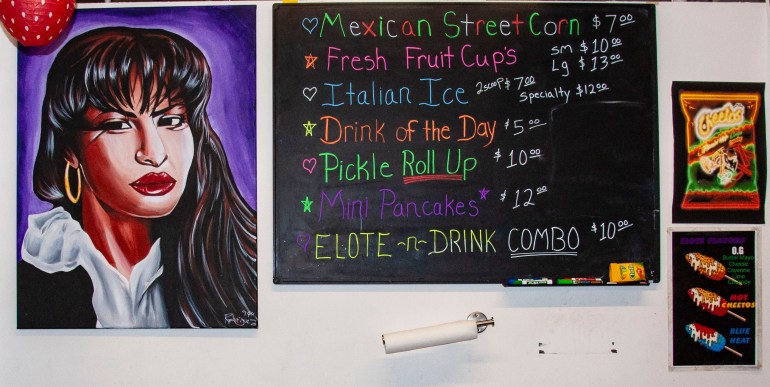 Mexican Street Corn $7.00
Fresh Fruit Cup's sm $10.00
Lg $13.00
Italian Ice 2scoop $7.00
Specialty $12.00
Drink of the Day $5.00
Pickle Roll Up $10.00
Mini Pancakes $12.00
ELOTE -n- DRINK COMBO $10.00
Cheetos
ELOTE FLAVORS
O.G
Butter Mayo
Cheese
Cayenne
Lime
HOT
CHEETOS
BLUE
HEAT